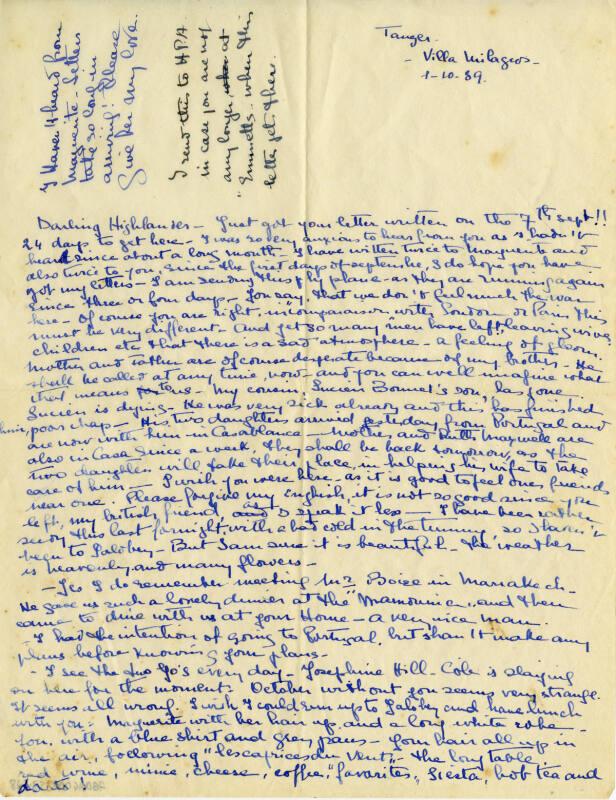 Tanger -
- Villa Milagros -
1-10.39.
I haven't heard from
Marguerite - Letters
take so long in
arriving! Please
Give her my love.
I send this to H.P.A.
in case you are not
any longer, at
"Emmetts" when this
letter gets there.
Darling Highlander - Just got your letter written on the 7th Sept!!
24 days to get here - I was so very anxious to hear from you as I hadn't
heard since about a long month - I have written twice to Marguerite and
also twice to you, since the first days of septembre, I do hope you have
got my letters - I am sending this by plane - as they are running again
since three or four days - You say, that we don't feel much the war
here - Of course you are right, in comparaison with London or Paris this
must be very different - And yet so many men have left, leaving wives,
children etc that there is a sad atmosphere - a feeling of gloom.
Mother and Father are of course desperate because of my brother - He
shall be called at any time, now - and you can well imagine what
that means - My cousin, Lucien Bonnet's son, has gone.
Lucien is dying - He was very sick already and this has finished
him, poor chap - His two daughters arrived yesterday from Portugal and
are now with him in Casablanca - Mother and Maxwell are
also in Casa since a week, they shall be back tomorrow, as the
two daughters will take their place, in helping his wife to take
care of him - I wish you were here - as it is good to feel ones friends
near one. Please forgive my English, it is not so good since you
left, my british friend as I speak it less - I have been rather
seedy this last fornight, with a bad cold in the tummy so I haven't
been to Jalobey - But I am sure it is beautiful - the weather
is heavenly and many flowers -
- Yes I do remember meeting Mr Boice in Marrakech -
He gave us such a lovely dinner at the "Mamounia", and then
came to dine with us at your Home - a very nice man.
- I had the intention of going to Portugal, but shan't make any
plans before knowing your plans -
- I see the two Jo's every day - Josephine Hill-Cole is staying
on here for the moment. October without you seems very strange.
It seems all wrong. I wish I could run up to Jalobey and have lunch
with you - Marguerite with her hair up, and a long white robe -
You, with a blue shirt and grey pans - your hair all up in
the air, following "les caprices du vent," - the long table,
red wine, mimie, cheese, coffee, "favorites", siesta, hot tea and